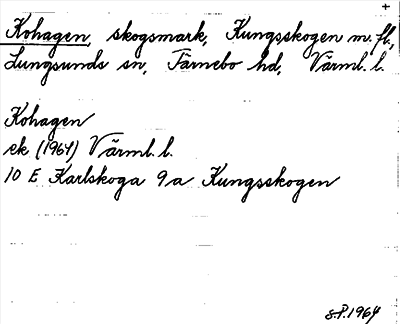 +
Kohagen, skogsmark, Kungsskogen m. fl.,
Lungsunds sn, Färnebo hd, Värml. l.
Kohagen
ek. (1964) Värml. l.
10 E Karlskoga 9a Kungsskogen
S.P. 1964